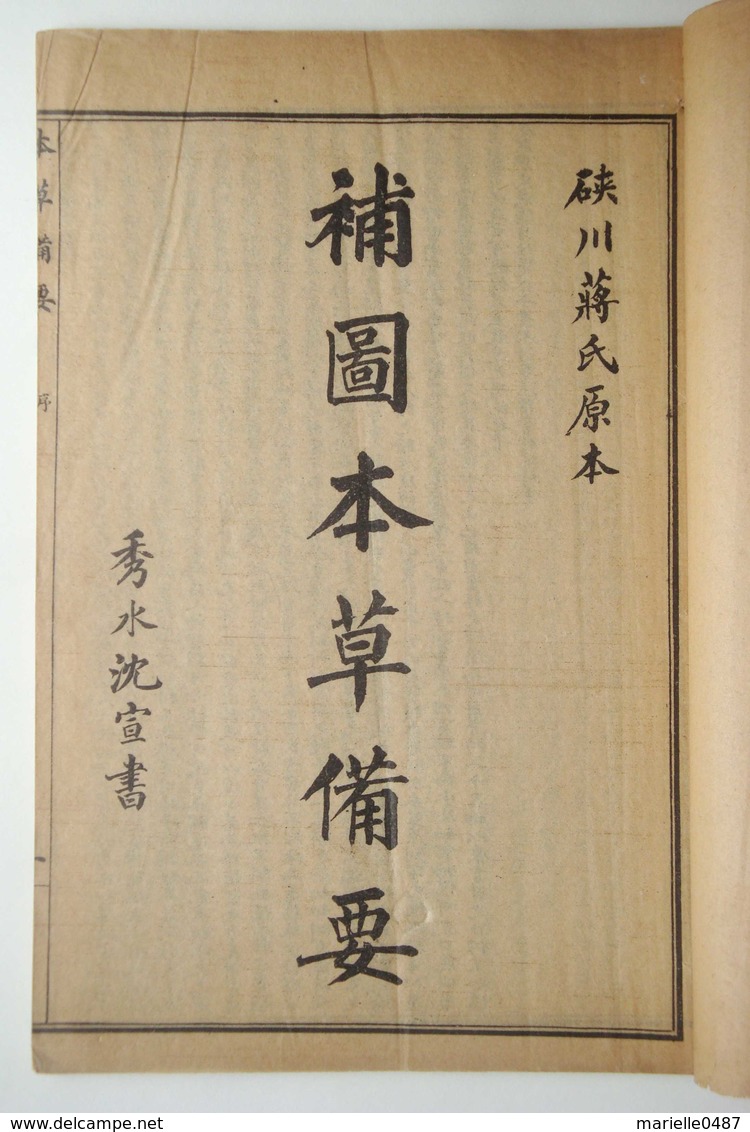 硤川蔣氏原本
補圖本草備要
秀水沈宣書
本草備要
序
delcampe.net
marielle0487